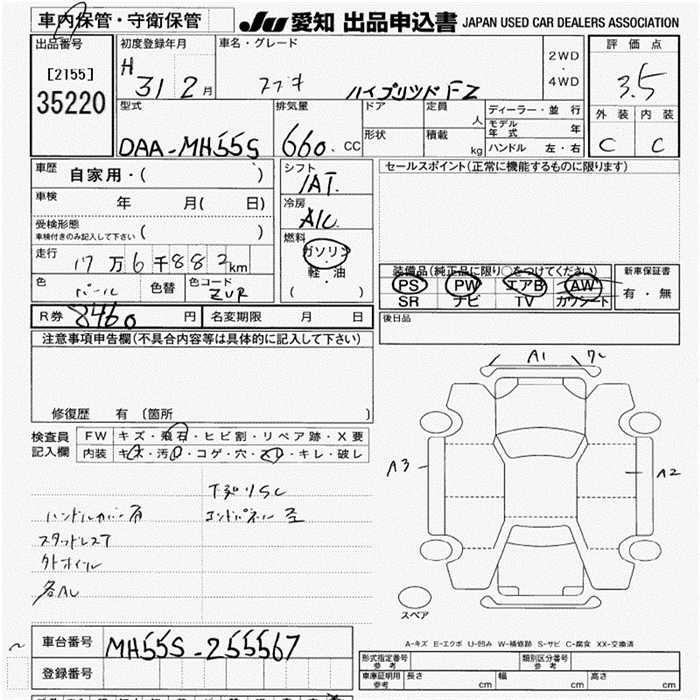 車内保管・守衛保管
JU 愛知 出品申込書 JAPAN USED CAR DEALERS ASSOCIATION
出品番号
[2155]
35220
初度登録年月
H 31 2 月
車名・グレード
ハイブリッド FZ
2WD
・
4WD
評価点
3.5
外装 内装
C C
型式
DAA-MH55S
排気量
660. CC
ドア
形状
定員
人
積載
kg
ディーラー・並行
モデル年式 年
ハンドル 左・右
車歴
自家用・( )
車検
年 月( 日)
受検形態
車検付きのみ記入して下さい ( )
走行
17万6千882km
色
パール
色替
色コード
ZVR
シフト
IAT.
冷房
A/C
燃料
ガソリン
・
軽・油
( )
セールスポイント(正常に機能するものに限ります)
装備品(純正品に限り○をつけてください)
PS PW エアB AW
SR ナビ TV カワシート
新車保証書
有・無
R券 8460 円
名変期限 月 日
後日品
注意事項申告欄(不具合内容等は具体的に記入して下さい)
修復歴 有 (箇所 )
検査員
記入欄
FW キズ・飛石・ヒビ割・リペア跡・X要
内装 キズ・汚レ・コゲ・穴・スレ・キレ・破レ
下廻りSC
ハンドルカバー有
スタッドレスT
外ホイル
各AU
A1
A3
A2
スペア
A-キズ E-エクボ U-凹み W-補修跡 S-サビ C-腐食 XX-交換済
車台番号
MH55S-255567
登録番号
形式指定番号
参考
類別区分番号
参考
車庫証明用
参考
長さ cm
幅 cm
高さ cm